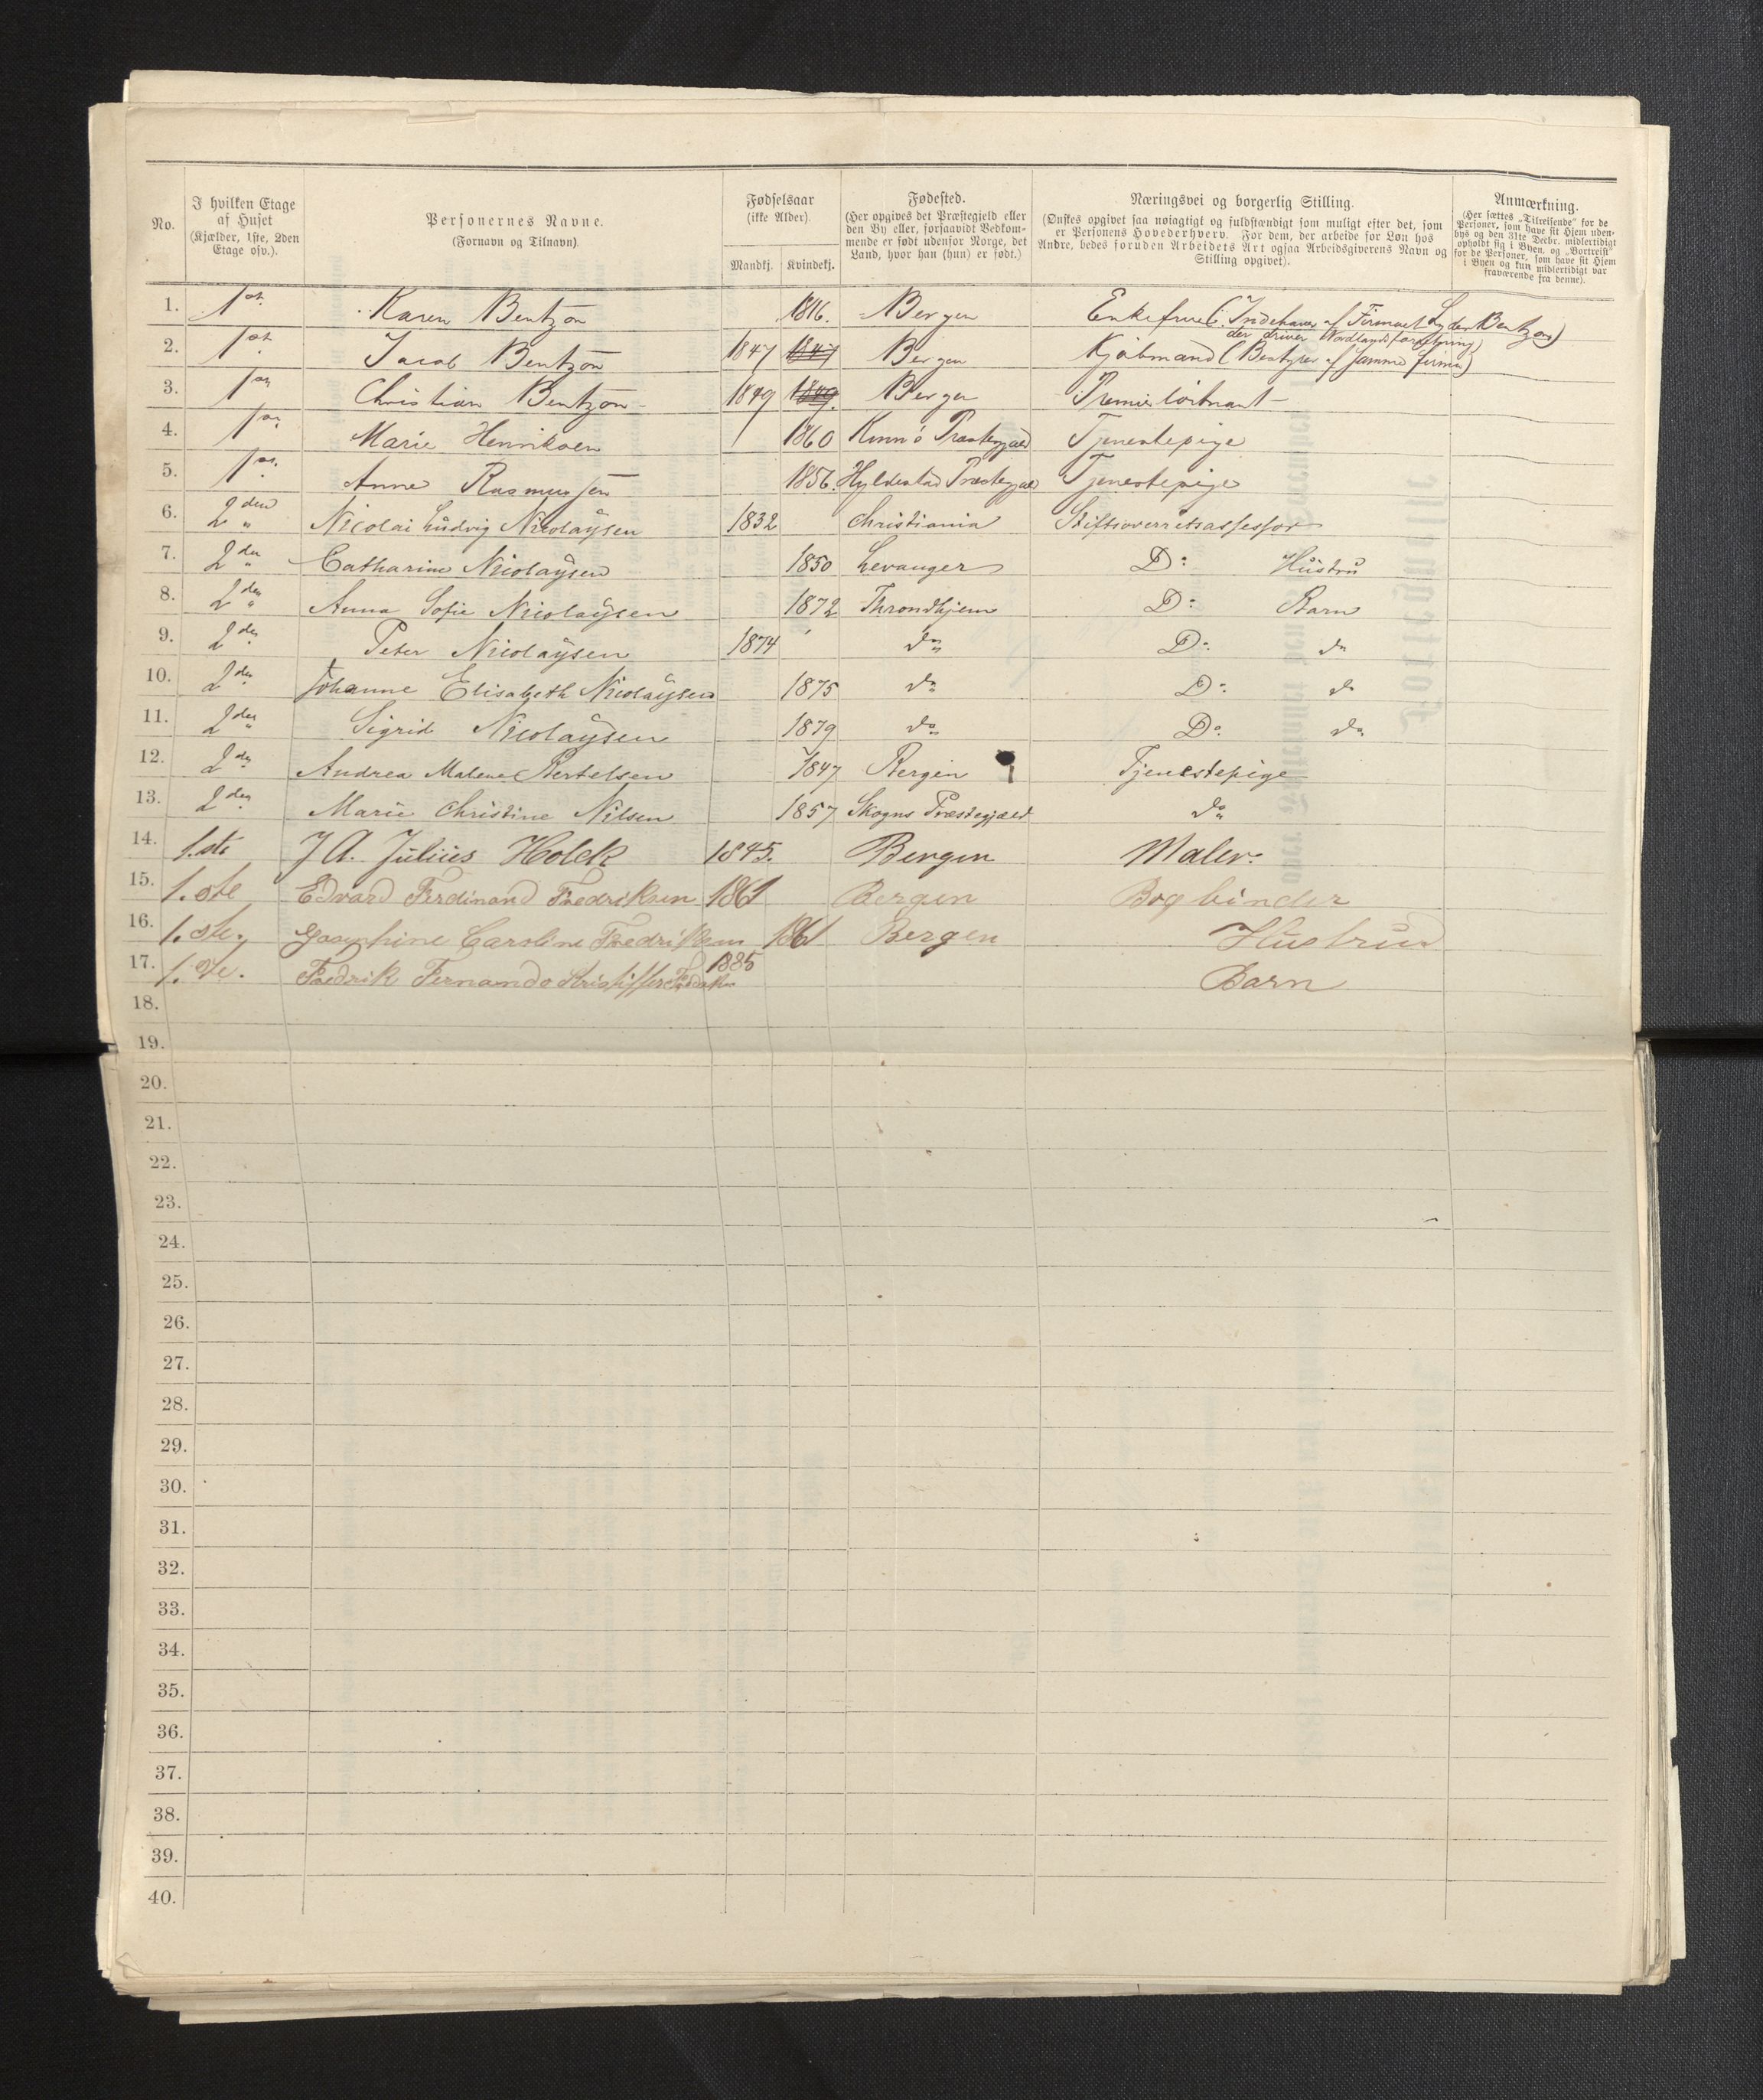 No.
I hvilken Etage
af Huset
(Kjælder, 1ste, 2den
Etage osv.).
Personernes Navne.
(Fornavn og Tilnavn).
Fødselsaar
(ikke Alder).
Mandkj. Kvindekj.
Fødested.
(Her opgives det Præstegjeld eller
den By eller, forsaavidt Vedkom-
mende er født udenfor Norge, det
Land, hvor han (hun) er født.)
Næringsvei og borgerlig Stilling.
(Ønskes opgivet saa nøiagtigt og fuldstændigt som muligt efter det, som
er Personens Hovederhverv. For dem, der arbeide for Løn hos
Andre, bedes foruden Arbeidets Art ogsaa Arbeidsgiverens Navn og
Stilling opgivet).
Anmærkning.
(Her sættes „Tilreisende" for de
Personer, som have sit Hjem uden-
bys og den 31te Decbr. midlertidigt
opholdt sig i Byen, og „Bortreist"
for de Personer, som have sit Hjem
i Byen og kun midlertidigt var
fraværende fra denne).
1. 1st. Karen Bentzon 1816. Bergen Enkefrue (Indehaver af Firmaet Lyder Bentzon)
der driver Nordlandsforretning
2. 1st. Jacob Bentzon 1847 1847 Bergen Kjøbmand (Bestyrer af samme firma)
3. 1st Christian Bentzon 1849 1849. Bergen Premierløitnant
4. 1st. Marie Henriksen 1860 Kinn Præstegjæld Tjenestepige
5. 1st. Anne Rasmussen 1856. Hyllestad Præstegjæld Tjenestepige
6. 2den Nicolai Ludvig Nicolaÿsen 1832 Christiania Stiftsoverretsassessor
7. 2den Catharine Nicolaÿsen 1850 Levanger D: Hustru
8. 2den Anna Sofie Nicolaÿsen 1872 Throndhjem D: Barn
9. 2den Peter Nicolaÿsen 1874 do D: do
10. 2den Johanne Elisabeth Nicolaÿsen 1875 do D: do
11. 2den Sigrid Nicolaÿsen 1879 do D: do
12. 2den Andrea Malene Bertelsen 1847 Bergen Tjenestepige
13. 2den Marie Christine Nilsen 1857 Skogns Præstegjæld do
14. 1.ste J A. Julius Holck 1845. Bergen Maler.
15. 1.ste Edvard Ferdinand Fredriksen 1861 Bergen Bogbinder
16. 1.ste. Josephine Caroline Fredriksen 1861 Bergen Hustrue
17. 1.ste. Fredrik Fernando Kristiffer Fredriksen 1885 Barn
18.
19.
20.
21.
22.
23.
24.
25.
26.
27.
28.
29.
30.
31.
32.
33.
34.
35.
36.
37.
38.
39.
40.